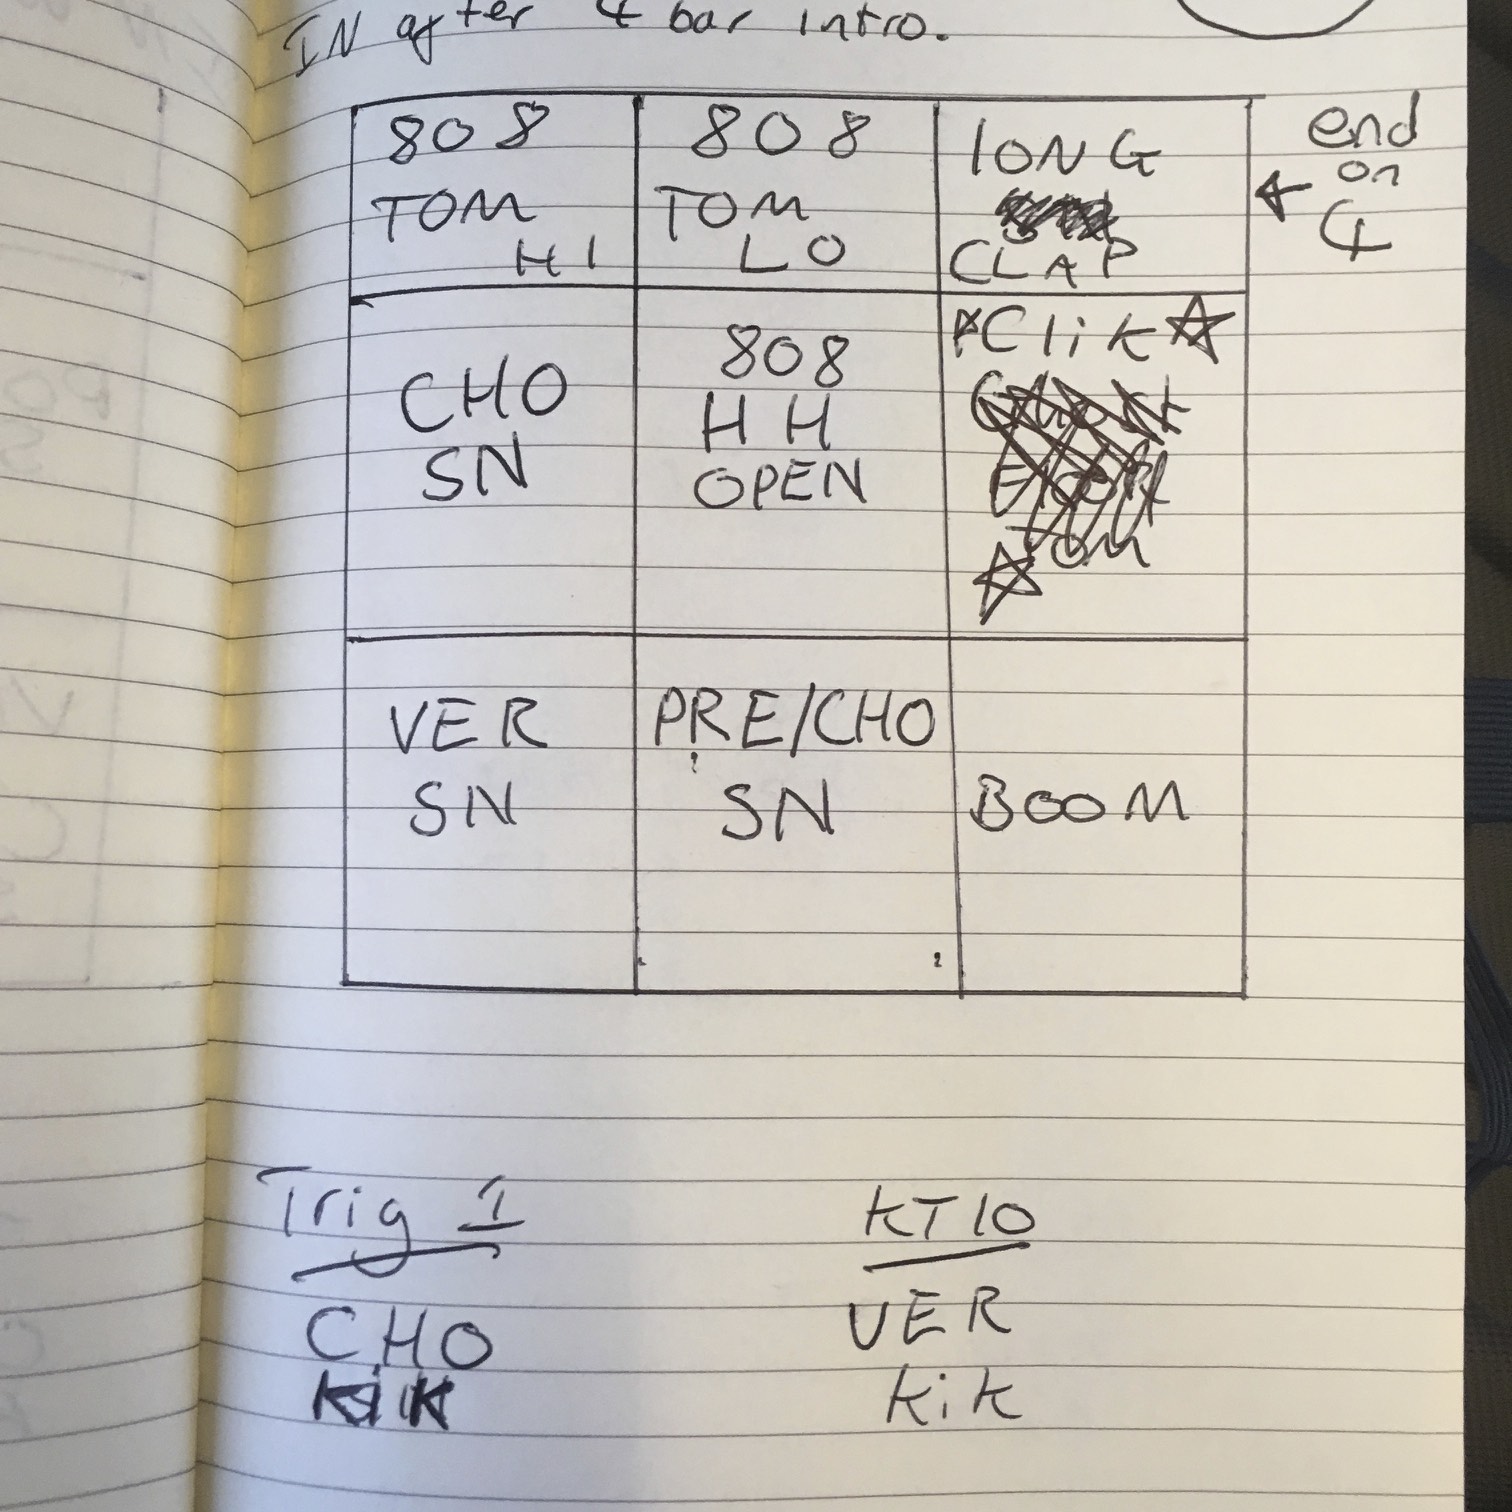 IN after 4 bar intro.
808
TOM
HI
808
TOM
LO
LONG
CLAP
end
on
4
CHO
SN
808
HH
OPEN
Clik
Tom
VER
SN
PRE/CHO
SN
BOOM
Trig 1
CHO
KiK
KT10
VER
KiK